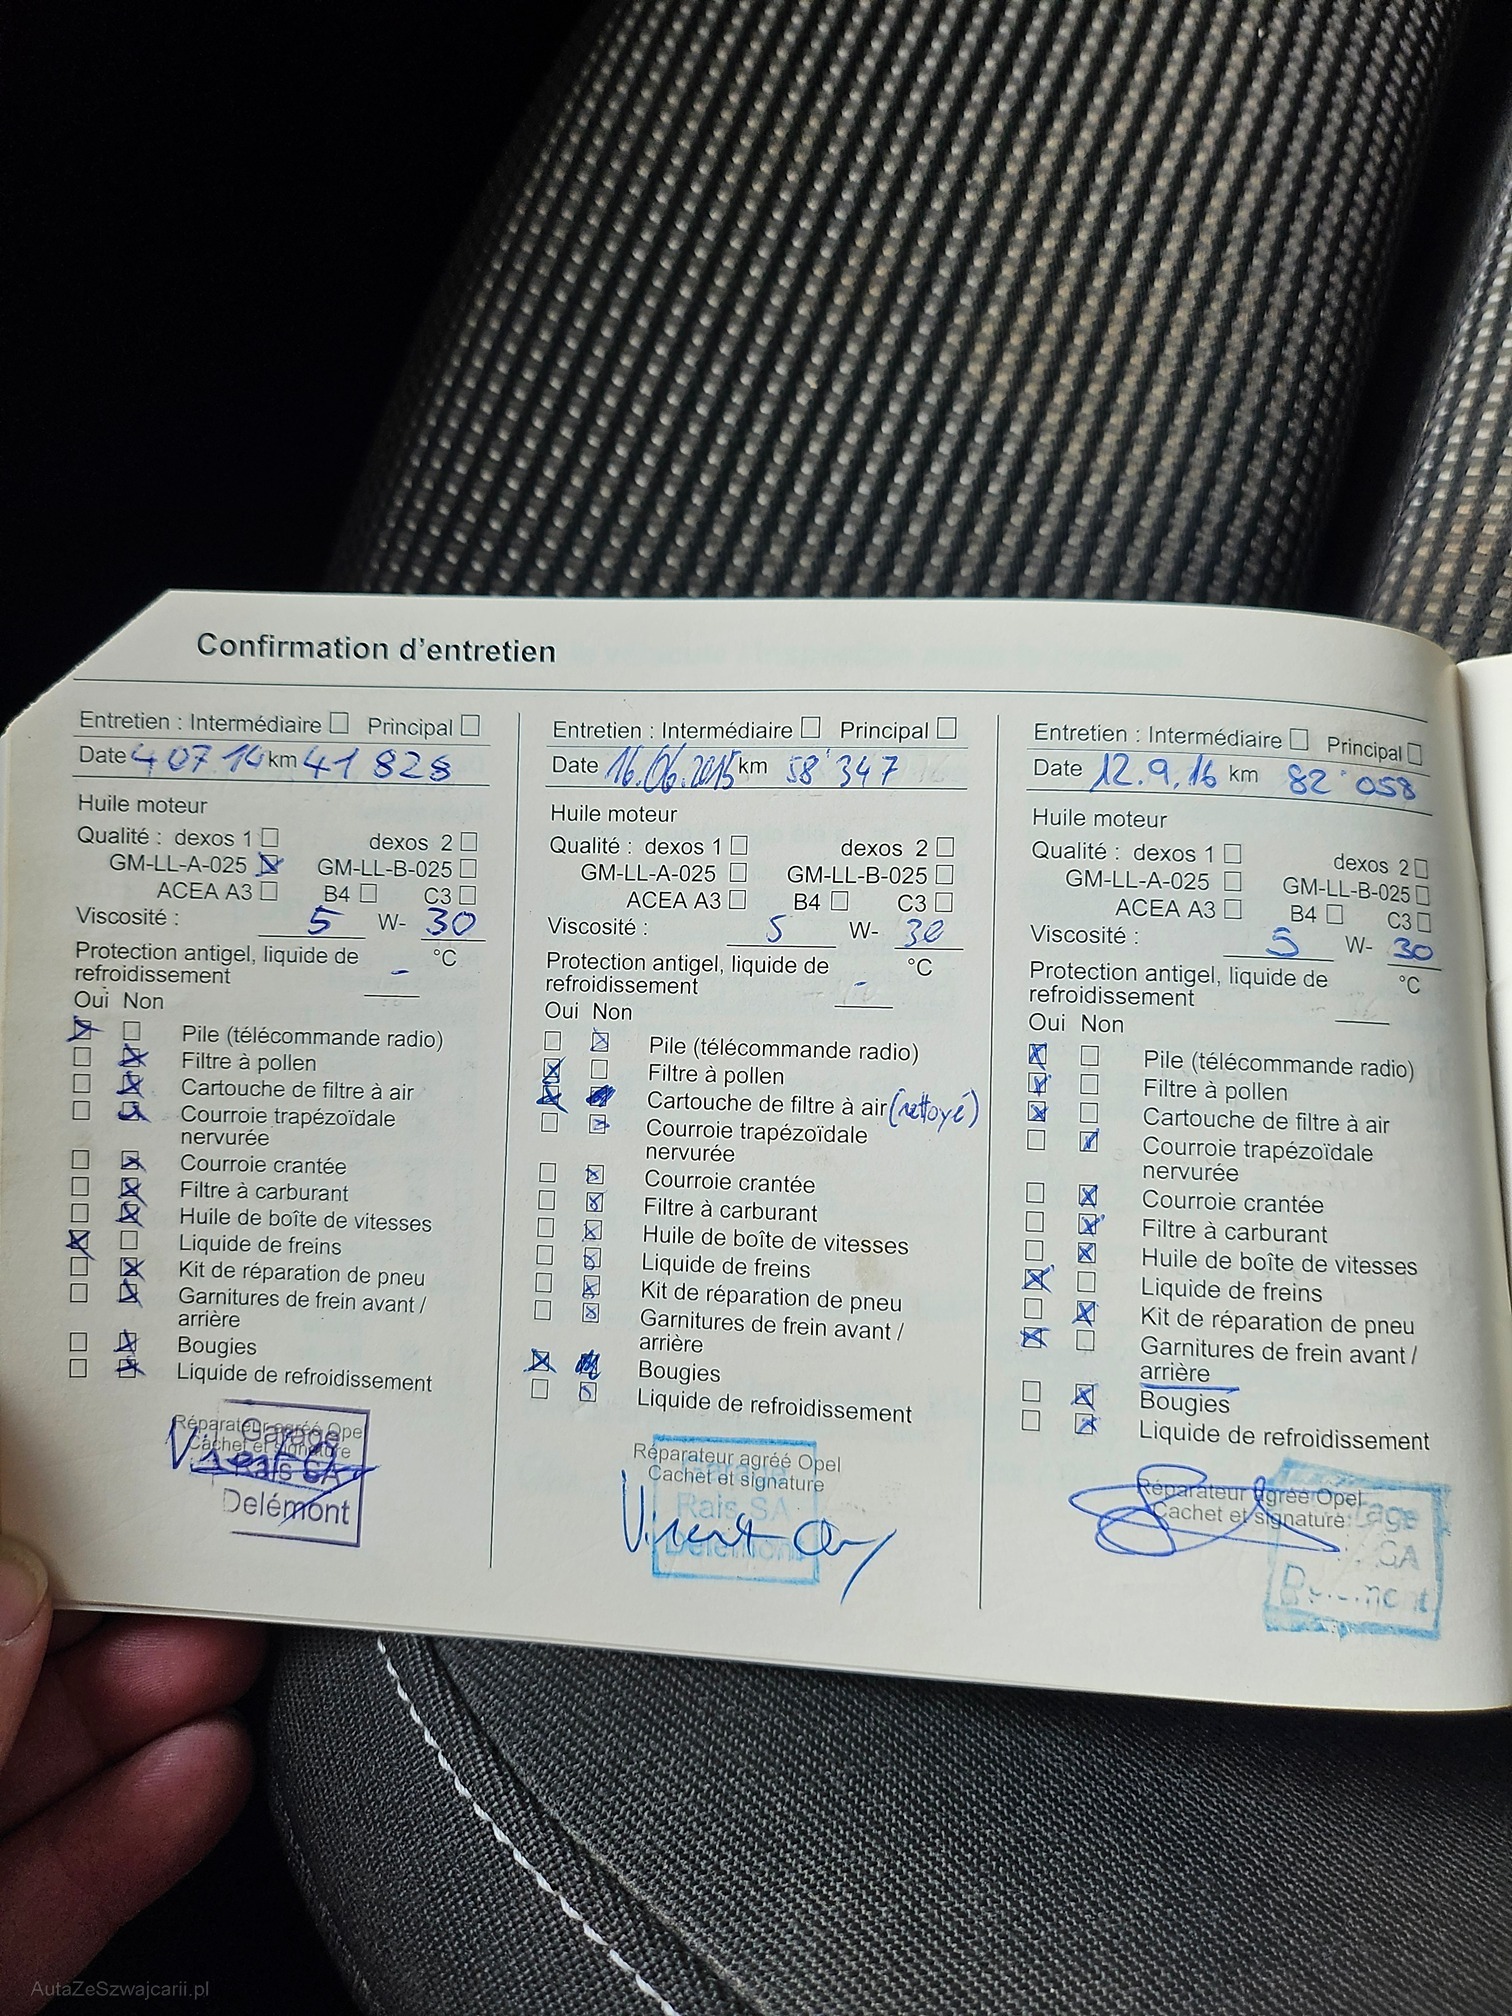 Confirmation d'entretien
Entretien : Intermédiaire Principal
Date 4 07 14 km 41 828
Huile moteur
Qualité : dexos 1 dexos 2
GM-LL-A-025 GM-LL-B-025
ACEA A3 B4 C3
Viscosité : 5 W- 30
Protection antigel, liquide de °C
refroidissement -
Oui Non
Pile (télécommande radio)
Filtre à pollen
Cartouche de filtre à air
Courroie trapézoïdale
nervurée
Courroie crantée
Filtre à carburant
Huile de boîte de vitesses
Liquide de freins
Kit de réparation de pneu
Garnitures de frein avant /
arrière
Bougies
Liquide de refroidissement
Réparateur agréé Opel
Cachet et signature
Garage
Rais SA
Delémont
Entretien : Intermédiaire Principal
Date 16.06.2015 km 58'347
Huile moteur
Qualité : dexos 1 dexos 2
GM-LL-A-025 GM-LL-B-025
ACEA A3 B4 C3
Viscosité : 5 W- 30
Protection antigel, liquide de °C
refroidissement -
Oui Non
Pile (télécommande radio)
Filtre à pollen
Cartouche de filtre à air (nettoyé)
Courroie trapézoïdale
nervurée
Courroie crantée
Filtre à carburant
Huile de boîte de vitesses
Liquide de freins
Kit de réparation de pneu
Garnitures de frein avant /
arrière
Bougies
Liquide de refroidissement
Réparateur agréé Opel
Cachet et signature
Garage
Rais SA
Delémont
Entretien : Intermédiaire Principal
Date 12.9.16 km 82'058
Huile moteur
Qualité : dexos 1 dexos 2
GM-LL-A-025 GM-LL-B-025
ACEA A3 B4 C3
Viscosité : 5 W- 30
Protection antigel, liquide de °C
refroidissement
Oui Non
Pile (télécommande radio)
Filtre à pollen
Cartouche de filtre à air
Courroie trapézoïdale
nervurée
Courroie crantée
Filtre à carburant
Huile de boîte de vitesses
Liquide de freins
Kit de réparation de pneu
Garnitures de frein avant /
arrière
Bougies
Liquide de refroidissement
Réparateur agréé Opel
Cachet et signature
SA
AutaZeSzwajcarii.pl